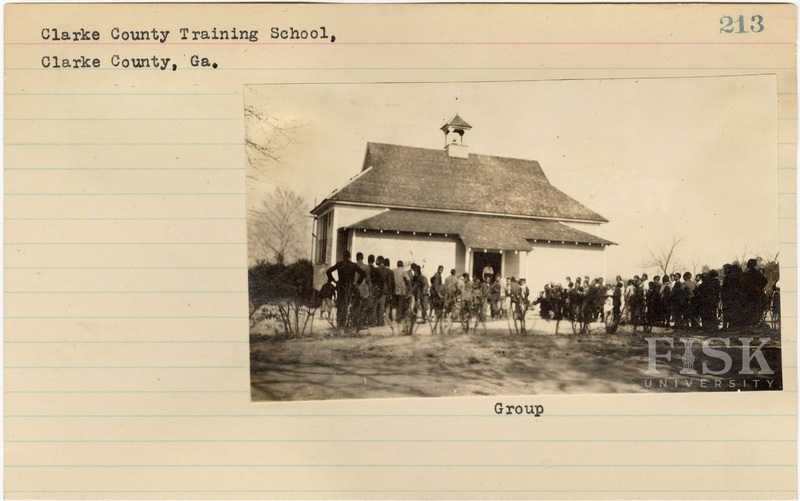 Clarke County Training School,
213
Clarke County, Ga.
FISK
UNIVERSITY
Group